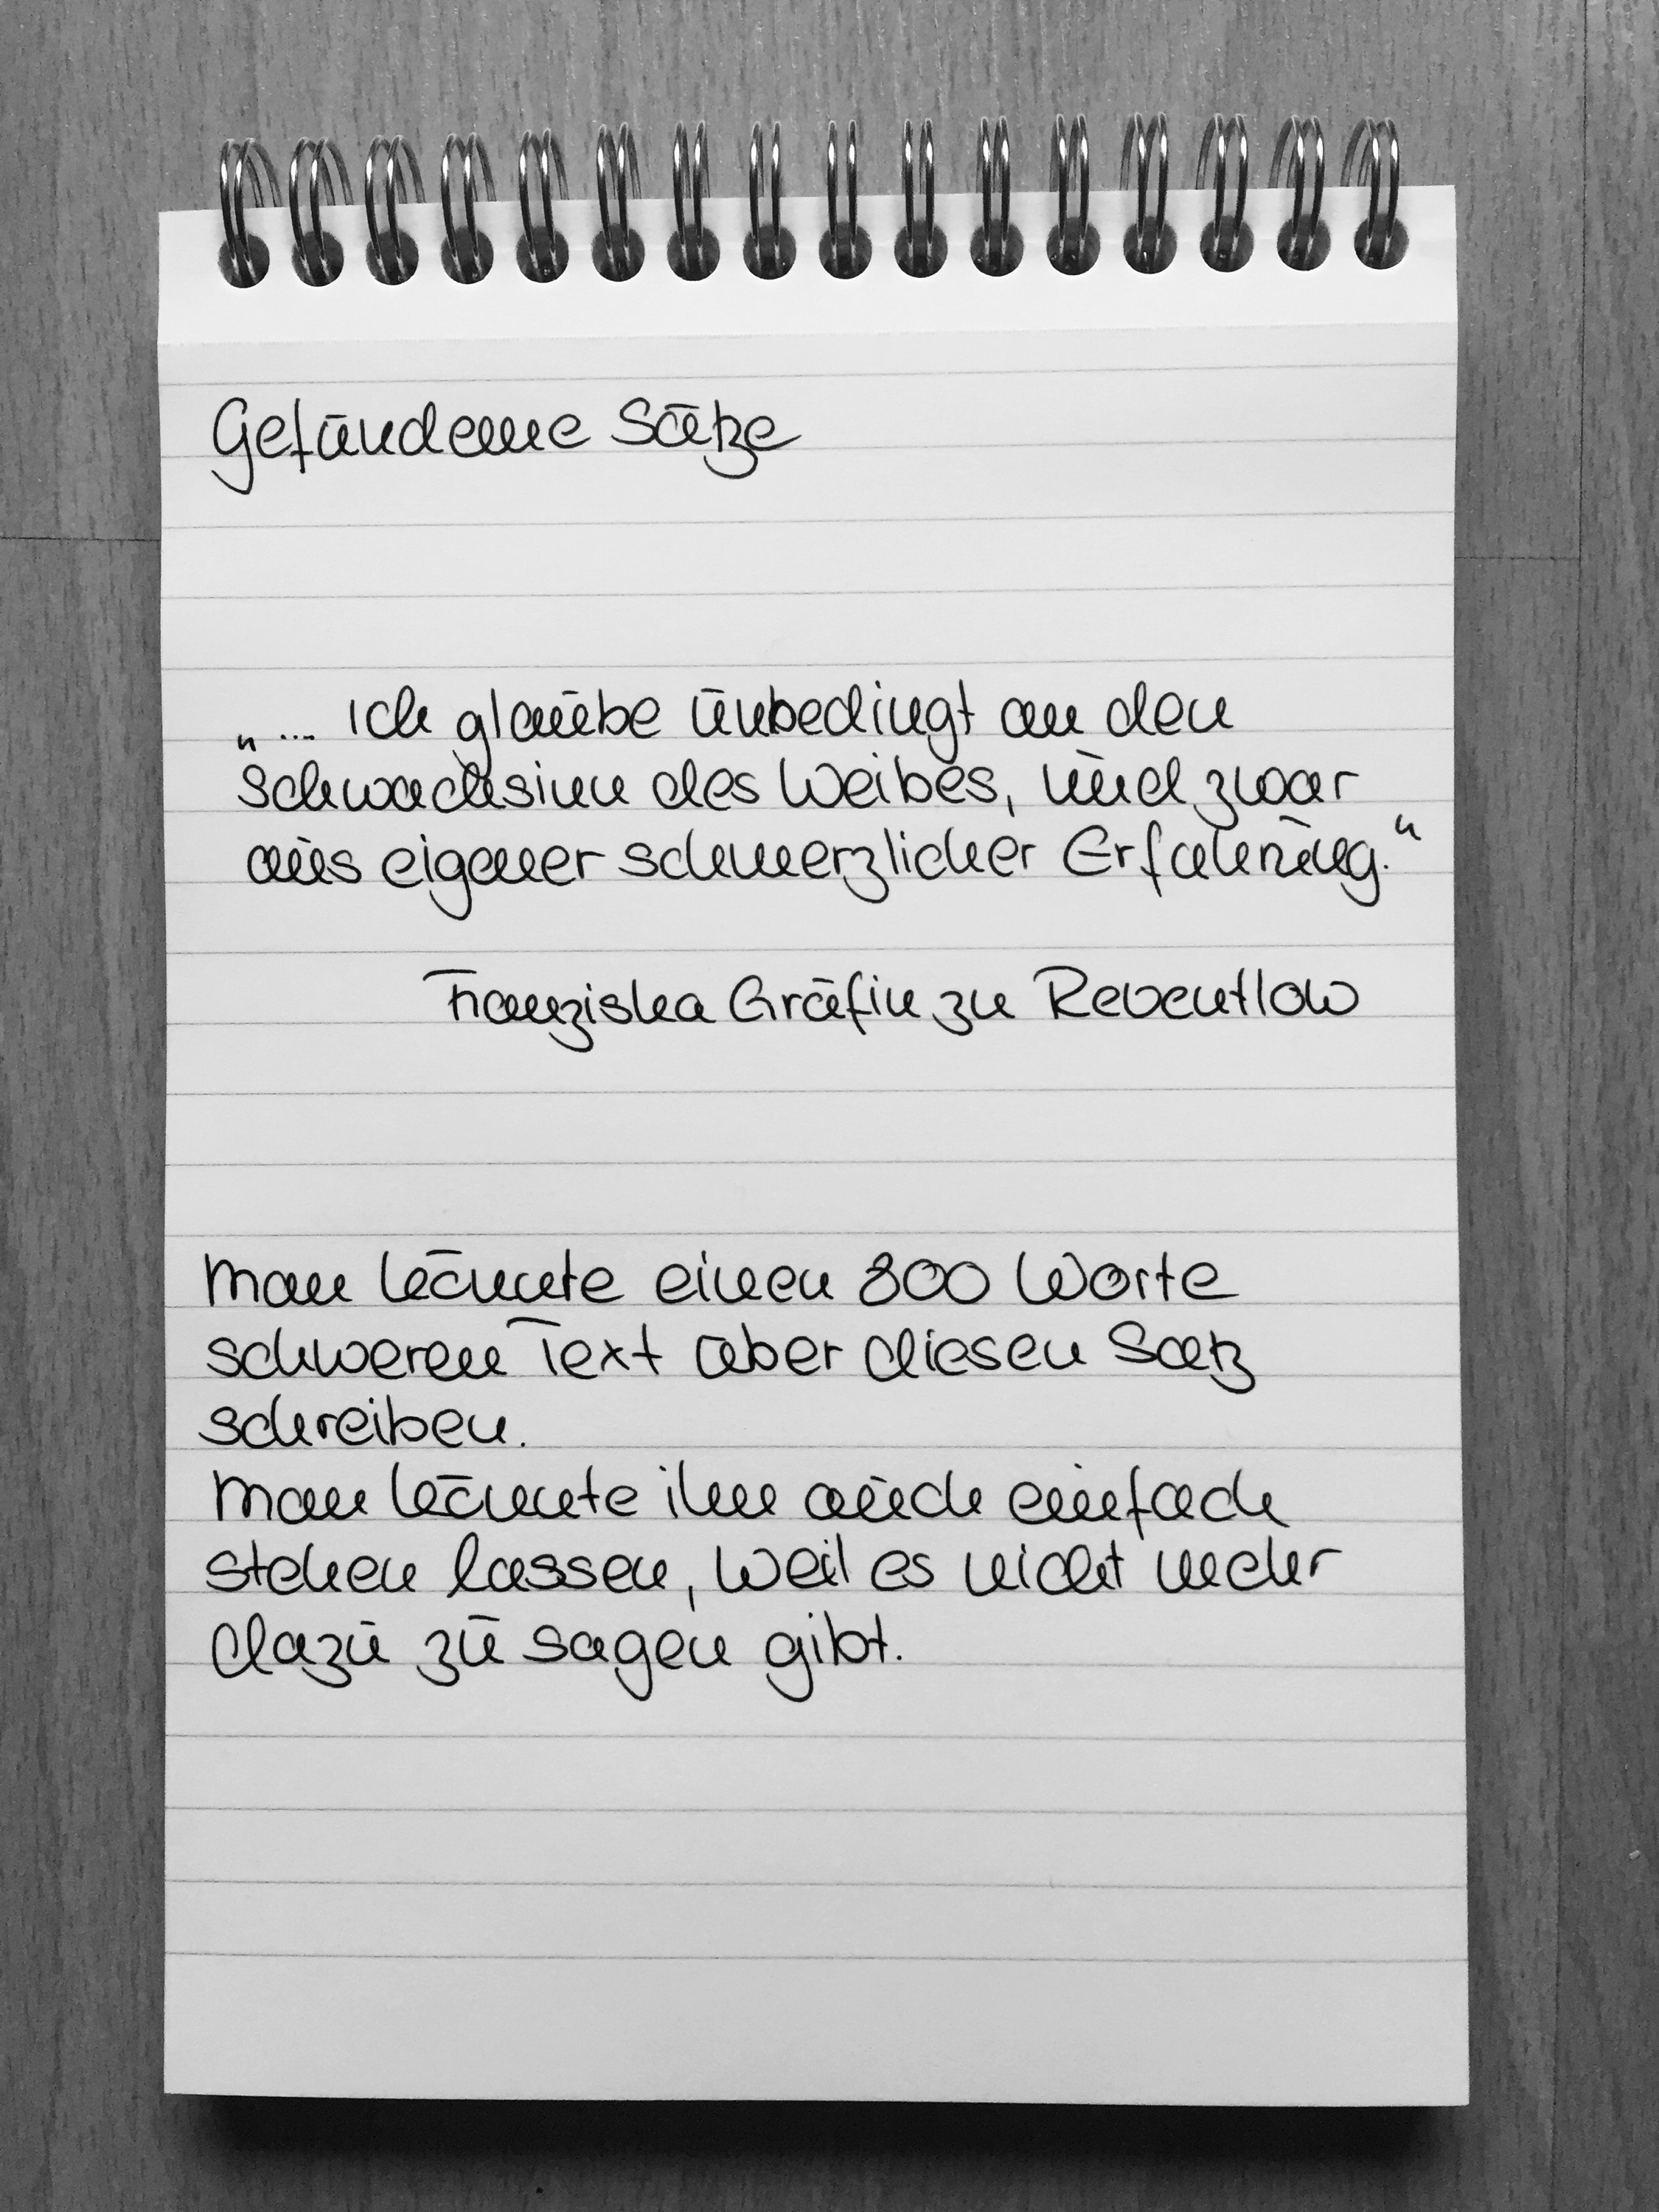 Gefundene Sätze
„... ich glaube unbedingt an den
Schwachsinn des Weibes, und zwar
aus eigener schmerzlicher Erfahrung.“
Franziska Gräfin zu Reventlow
Man könnte einen 800 Worte
schweren Text über diesen Satz
schreiben.
Man könnte ihn auch einfach
stehen lassen, weil es nicht mehr
dazu zu sagen gibt.